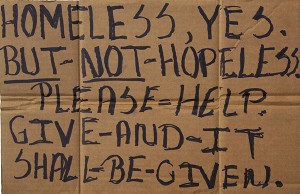 HOMELESS, YES.
BUT-NOT-HOPELESS
PLEASE=HELP.
GIVE-AND-IT
SHALL-BE-GIVEN.